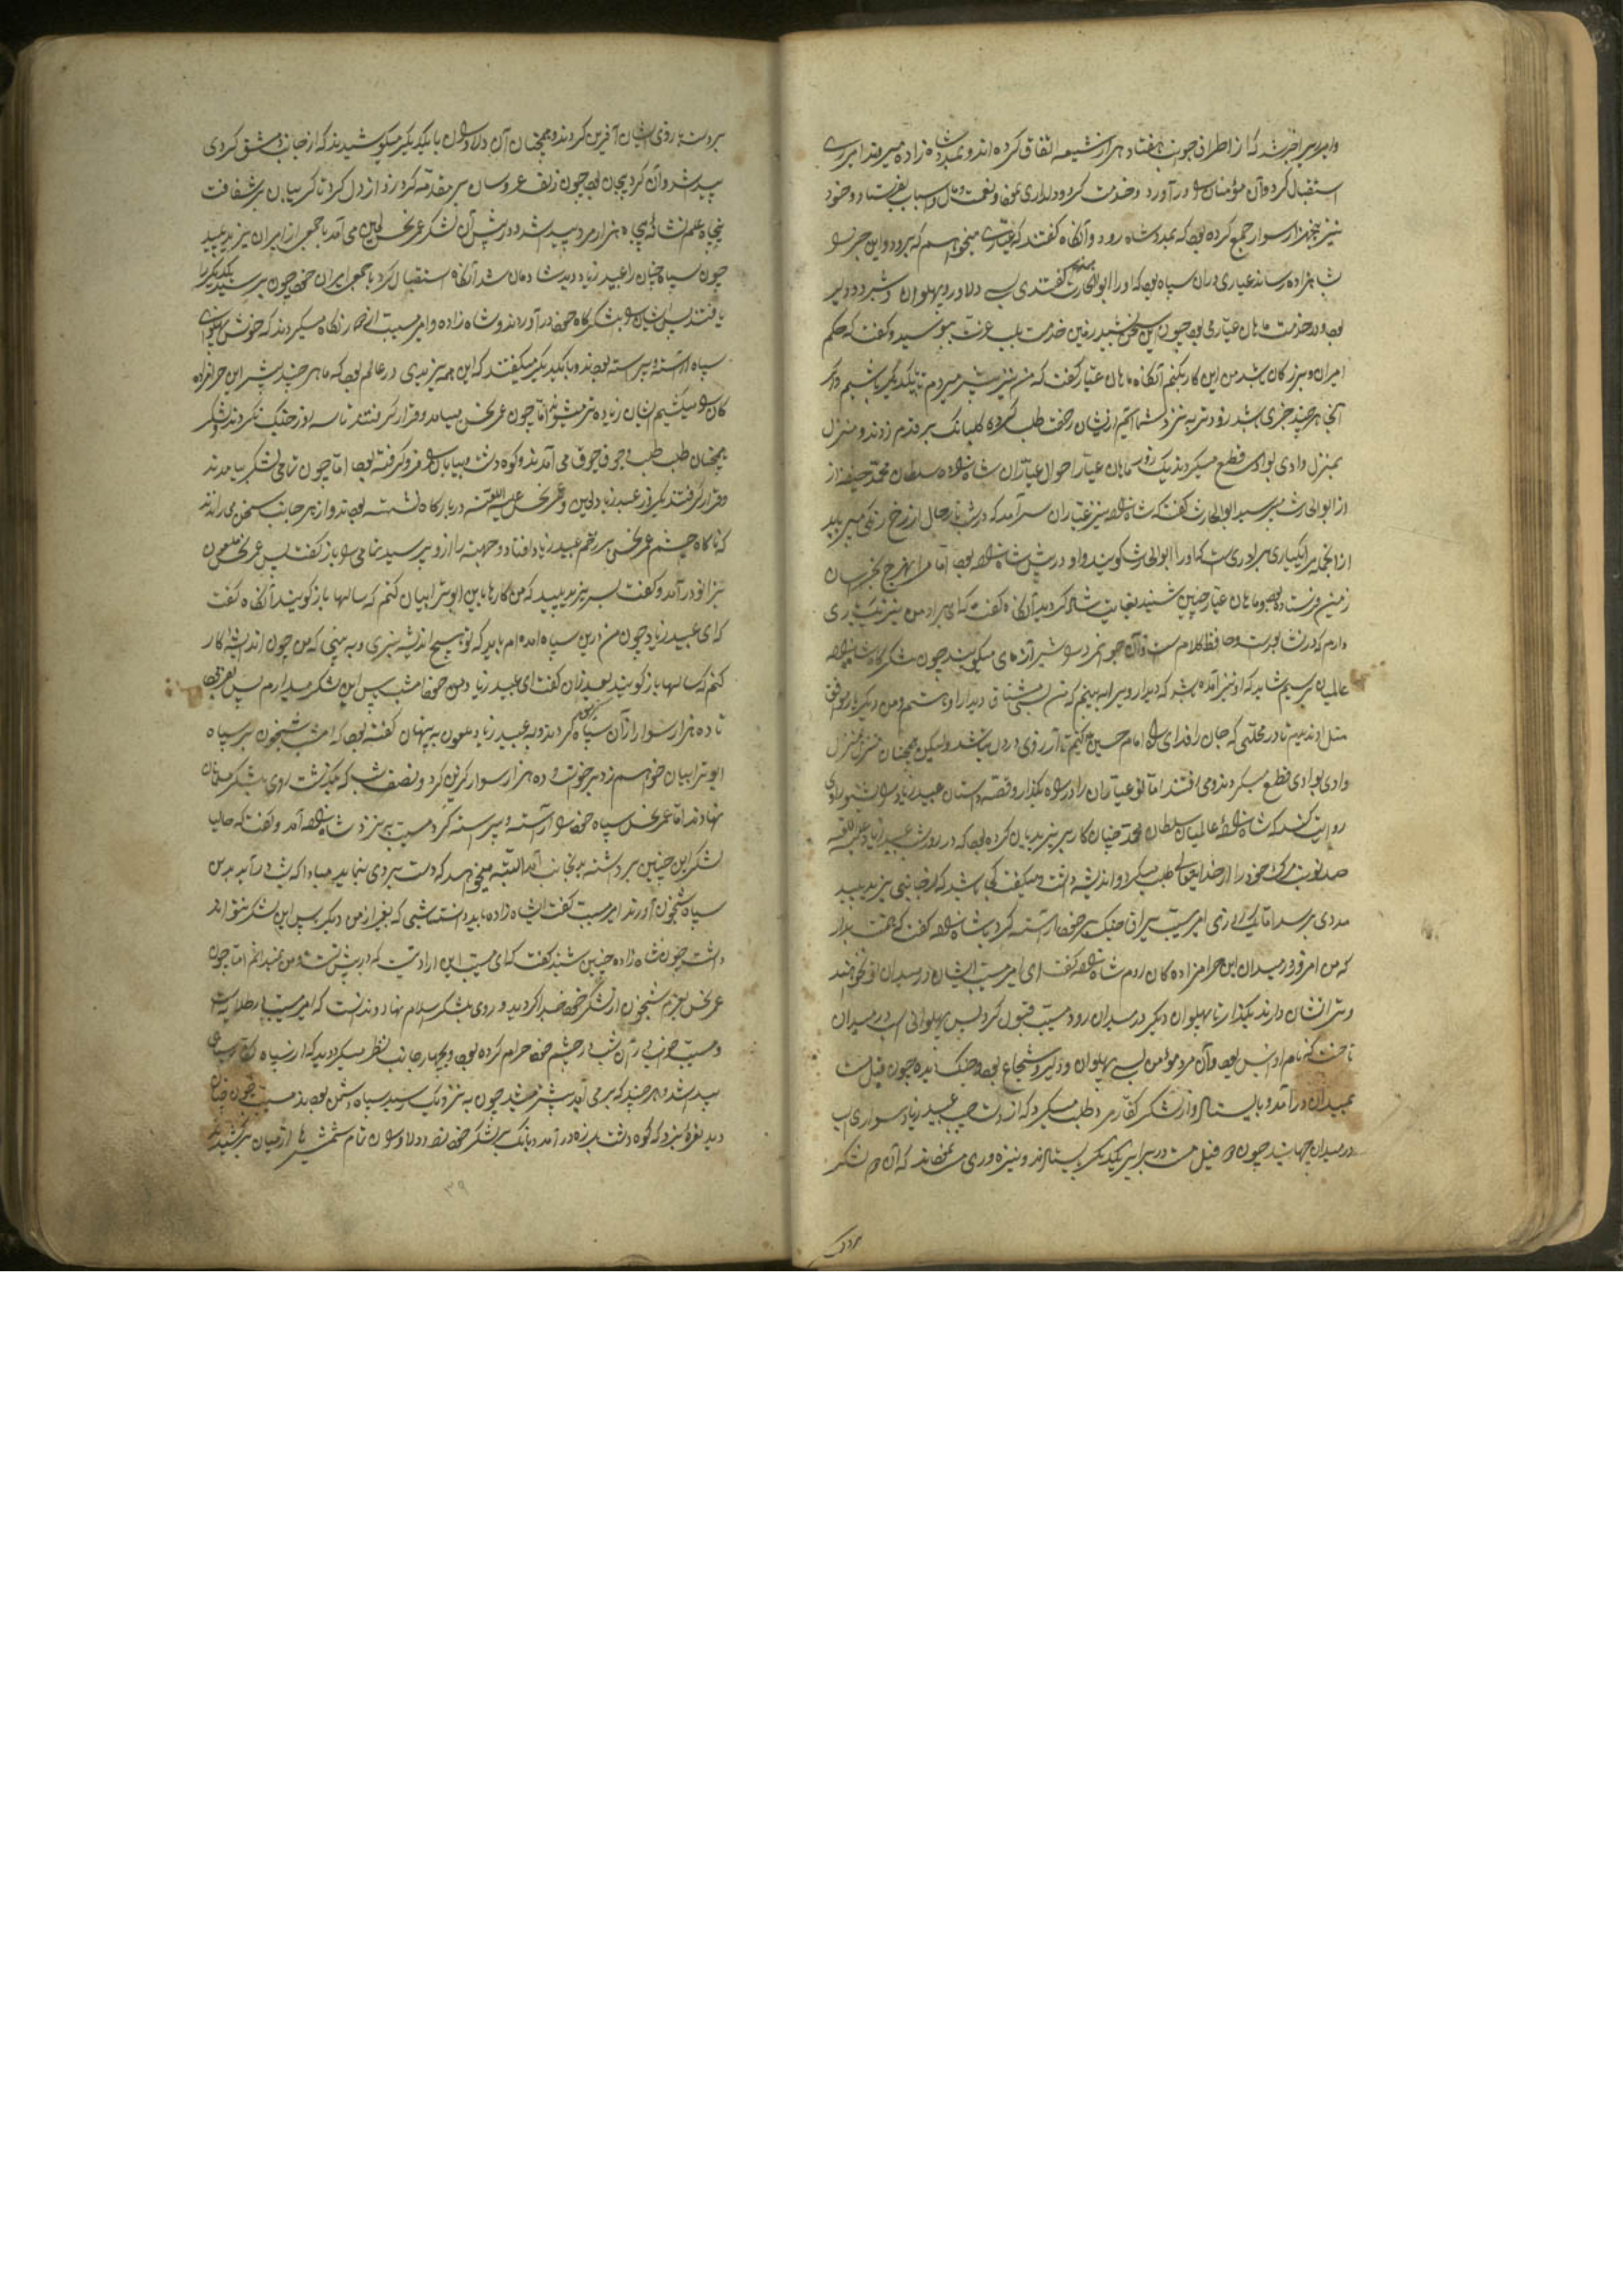 وامیر را خبر شد که از اطراف چون هفتاد هزار شیعه اتفاق کرده اند و بمدد شاه زاده میروند امیر روی
استقبال کرد و آن مؤمنان را درآورد و خدمت کرد و دلداری نمود و نعمت و مال و اسباب بفرستاد و خود
نیز پنجهزار سوار جمع کرده بود که بمدد شاه رود و آنگاه گفتند که عیاری میخواهیم که برود و این خبر را
شاهزاده رساند عیاری دران سپاه بود که او را ابوالحارث گفتندی بس دلاور و پهلوان و شبرو و دلیر
بود و در خدمت ماهان عیار می بود چون این سخن شنید زمین خدمت بلب عزت ببوسید و گفت که حکم
امیران و بزرگان باشد من این کار بکنم آنگاه ماهان عیار گفت که من نیز پیشتر میروم تا بیکدیگر باشیم و اگر
آنجا هر چند خبری باشد زودتر به نزد شما آئیم از ایشان رخصت طلب کرده گلبانگ بر قدم زدند و منزل
بمنزل وادی بوادی قطع میکردند یک روز ماهان عیار احوال عیاران شاه زاده سلطان محمد حنیفه از
از ابوالحارث میپرسید ابوالحارث گفت که شاه زاده نیز عیاران سرآمد که در شب تار خال از رخ زنگی میرباید
از انجمله مرا یکباری برادری است که او را ابوالحرث گویند و او در پیش شاه زاده بود اما مرا بهر خبر خراسان
زمین فرستاده بود ماهان عیار چنین شنید بغایت شاد گردید آنگاه گفت که ای برادر من نیز یک یاری
دارم که در نیشابورست و حافظ کلام است و آن جوانمرد را شیرآزمای میگویند چون بلشکرگاه شاه زاده
عالمیان برسیم شاید که او نیز آمده باشد که دیدار وی را به بینم که من بسی مشتاق دیدار او هستم و من دیگر یار موافق
مثل او ندیدیم تا در محلتی که جان را فدای راه امام حسین کنیم تا آرزوی در دل نباشد ولیکن همچنان منزل بمنزل
وادی بوادی قطع میکردند و می رفتند اما تو عیاران را در راه بگذار و قصه داستان عبید زیاد را بشنو راوی
روایت کند که شاه زاده عالمیان سلطان محمد چنان کار بر یزیدیان کرده بود که در روز شب عبید زیاد علیه اللعنه
صد نوبت مرگ خود را از خدایتعالی طلب میکرد و اندیشه داشت و میگفت کی باشد که از جانب یزید پلید
مددی برسد اما یک روزی امیر مسیب یراق جنگ بر خود آراسته کرد و بشاه زاده گفت که همت بدار
که من امروز در میدان این حرامزاده گان روم شاه زاده گفت ای امیر مسیب ایشان در میدان تو نخواهند
و ترا نشان دارند بگذار تا پهلوان دیگر در میدان رود مسیب قبول کرد پس پهلوانی اسب در میدان
تاخت که نام او انس بود و آن مرد مؤمن بس پهلوان و دلیر و شجاع بود و جنگ دیده چون فیل مست
بمیدان درآمد و بایستاد و از لشکر کفار مرد طلب میکرد که از دست چپ عبید زیاد سواری اسب
در میدان جهانید چون دو فیل مست در برابر یکدیگر بایستادند و نیزه وری می نمودند که آن دو لشکر
بر دست و بازوی ایشان آفرین کردند و همچنان آن دلاوران با یکدیگر میکوشیدند که از جانب دمشق گردی
پیدا شد و آن گرد پیچان بود چون زلف عروسان سر مقدمه گرد زد از دل گرد تا گریبان بر شکافت
پنجاه علم نشانه پنجاه هزار مرد پیدا شد و در پیش آن لشکر عمر نحس لعین می آمد با جمعی از امیران یزید پلید
چون سپاه چنان را عبید زیاد دید شادمان شد آنگاه استقبال کرد با جمع امیران خود چون برسید یکدیگر را
یافتند پس ایشان را بلشکرگاه خود درآوردند و شاه زاده و امیر مسیب از دور نگاه میکردند که خوش پهلوان
سپاه آراسته و پیراسته بودند و با یکدیگر میگفتند که این همه یزیدی در عالم بود که ما هر چند بیشتر این حرامزاده
گان را میکشیم ایشان زیاده تر میشود اما چون عمر نحس بیامد و قرار گرفتند تا سه روز جنگ نکردند لشکر
همچنان طلب طلب و جوق جوق می آمدند و کوه و دشت و بیابان را فرو گرفته بود اما چون تمامی لشکر بیامدند
و قرار گرفتند یکروز عبید زیاد لعین و عمر نحس علیه اللعنه در بارگاه نشسته بودند و از هر جانب سخن می راندند
که ناگاه چشم عمر نحس بر زخم عبید زیاد افتاد و جهت را از وی پرسید تمامی را باز گفت پس عمر نحس ملعون
بزانو درآمد و گفت بسر یزید پلید که من کارها باین ابوترابیان کنم که سالها باز گویند آنگاه گفت
که ای عبید زیاد چون من درین سپاه آمده ام باید که تو هیچ اندیشه نبری و به بینی که من چون اندیشه کار
کنم که سالها باز گویند بعد ازان گفت ای عبید زیاد من خود امشب پس این لشکر میدارم پس بفرمود
تا ده هزار سوار از آن سپاه بیرون کردند و به عبید زیاد ملعون به پنهان گفته بود که امشب شبخون بر سپاه
ابوترابیان خواهم زد برخواست و ده هزار سوار گزین کرد و نصف شب که بگذشت روی بلشکر مسلمانان
نهادند اما عمر نحس سپاه خود را آراسته و پیراسته کرد مسیب به نزد شاه زاده آمد و گفت که حالیا
لشکر این چنین برداشته بدینجانب آمد البته میخواهد که دست بردی بنماید مبادا که شب درآید بدین
سپاه شبخون آورند امیر مسیب گفت ای شاه زاده باید دانستن شبی که بغیر از من دیگر پس این لشکر نتواند
داشت چون شاه زاده چنین شنید گفت که ای مسیب این ارادتیست که در پیش تست و من نمیدانم اما چون
عمر نحس بعزم شبخون از لشکر خود جدا گردید و روی بلشکر اسلام نهاد و ندانست که امیر مسیب بر طلایه است
و مسیب خواب آن شب بر چشم خود حرام کرده بود و بچهار جانب نظر میکرد دید که از سپاه سیاهی
پیدا شد و هر چند که بر می آید بیشتر میشد چون به نزدیک رسید سپاه دشمن بودند مسیب چون چنان
دید نعره بزد که کوه و دشت بلرزه درآمد و بانگ بر لشکر خود زد و دلاوران تمام شمشیرها از میان برکشیدند
۳۹